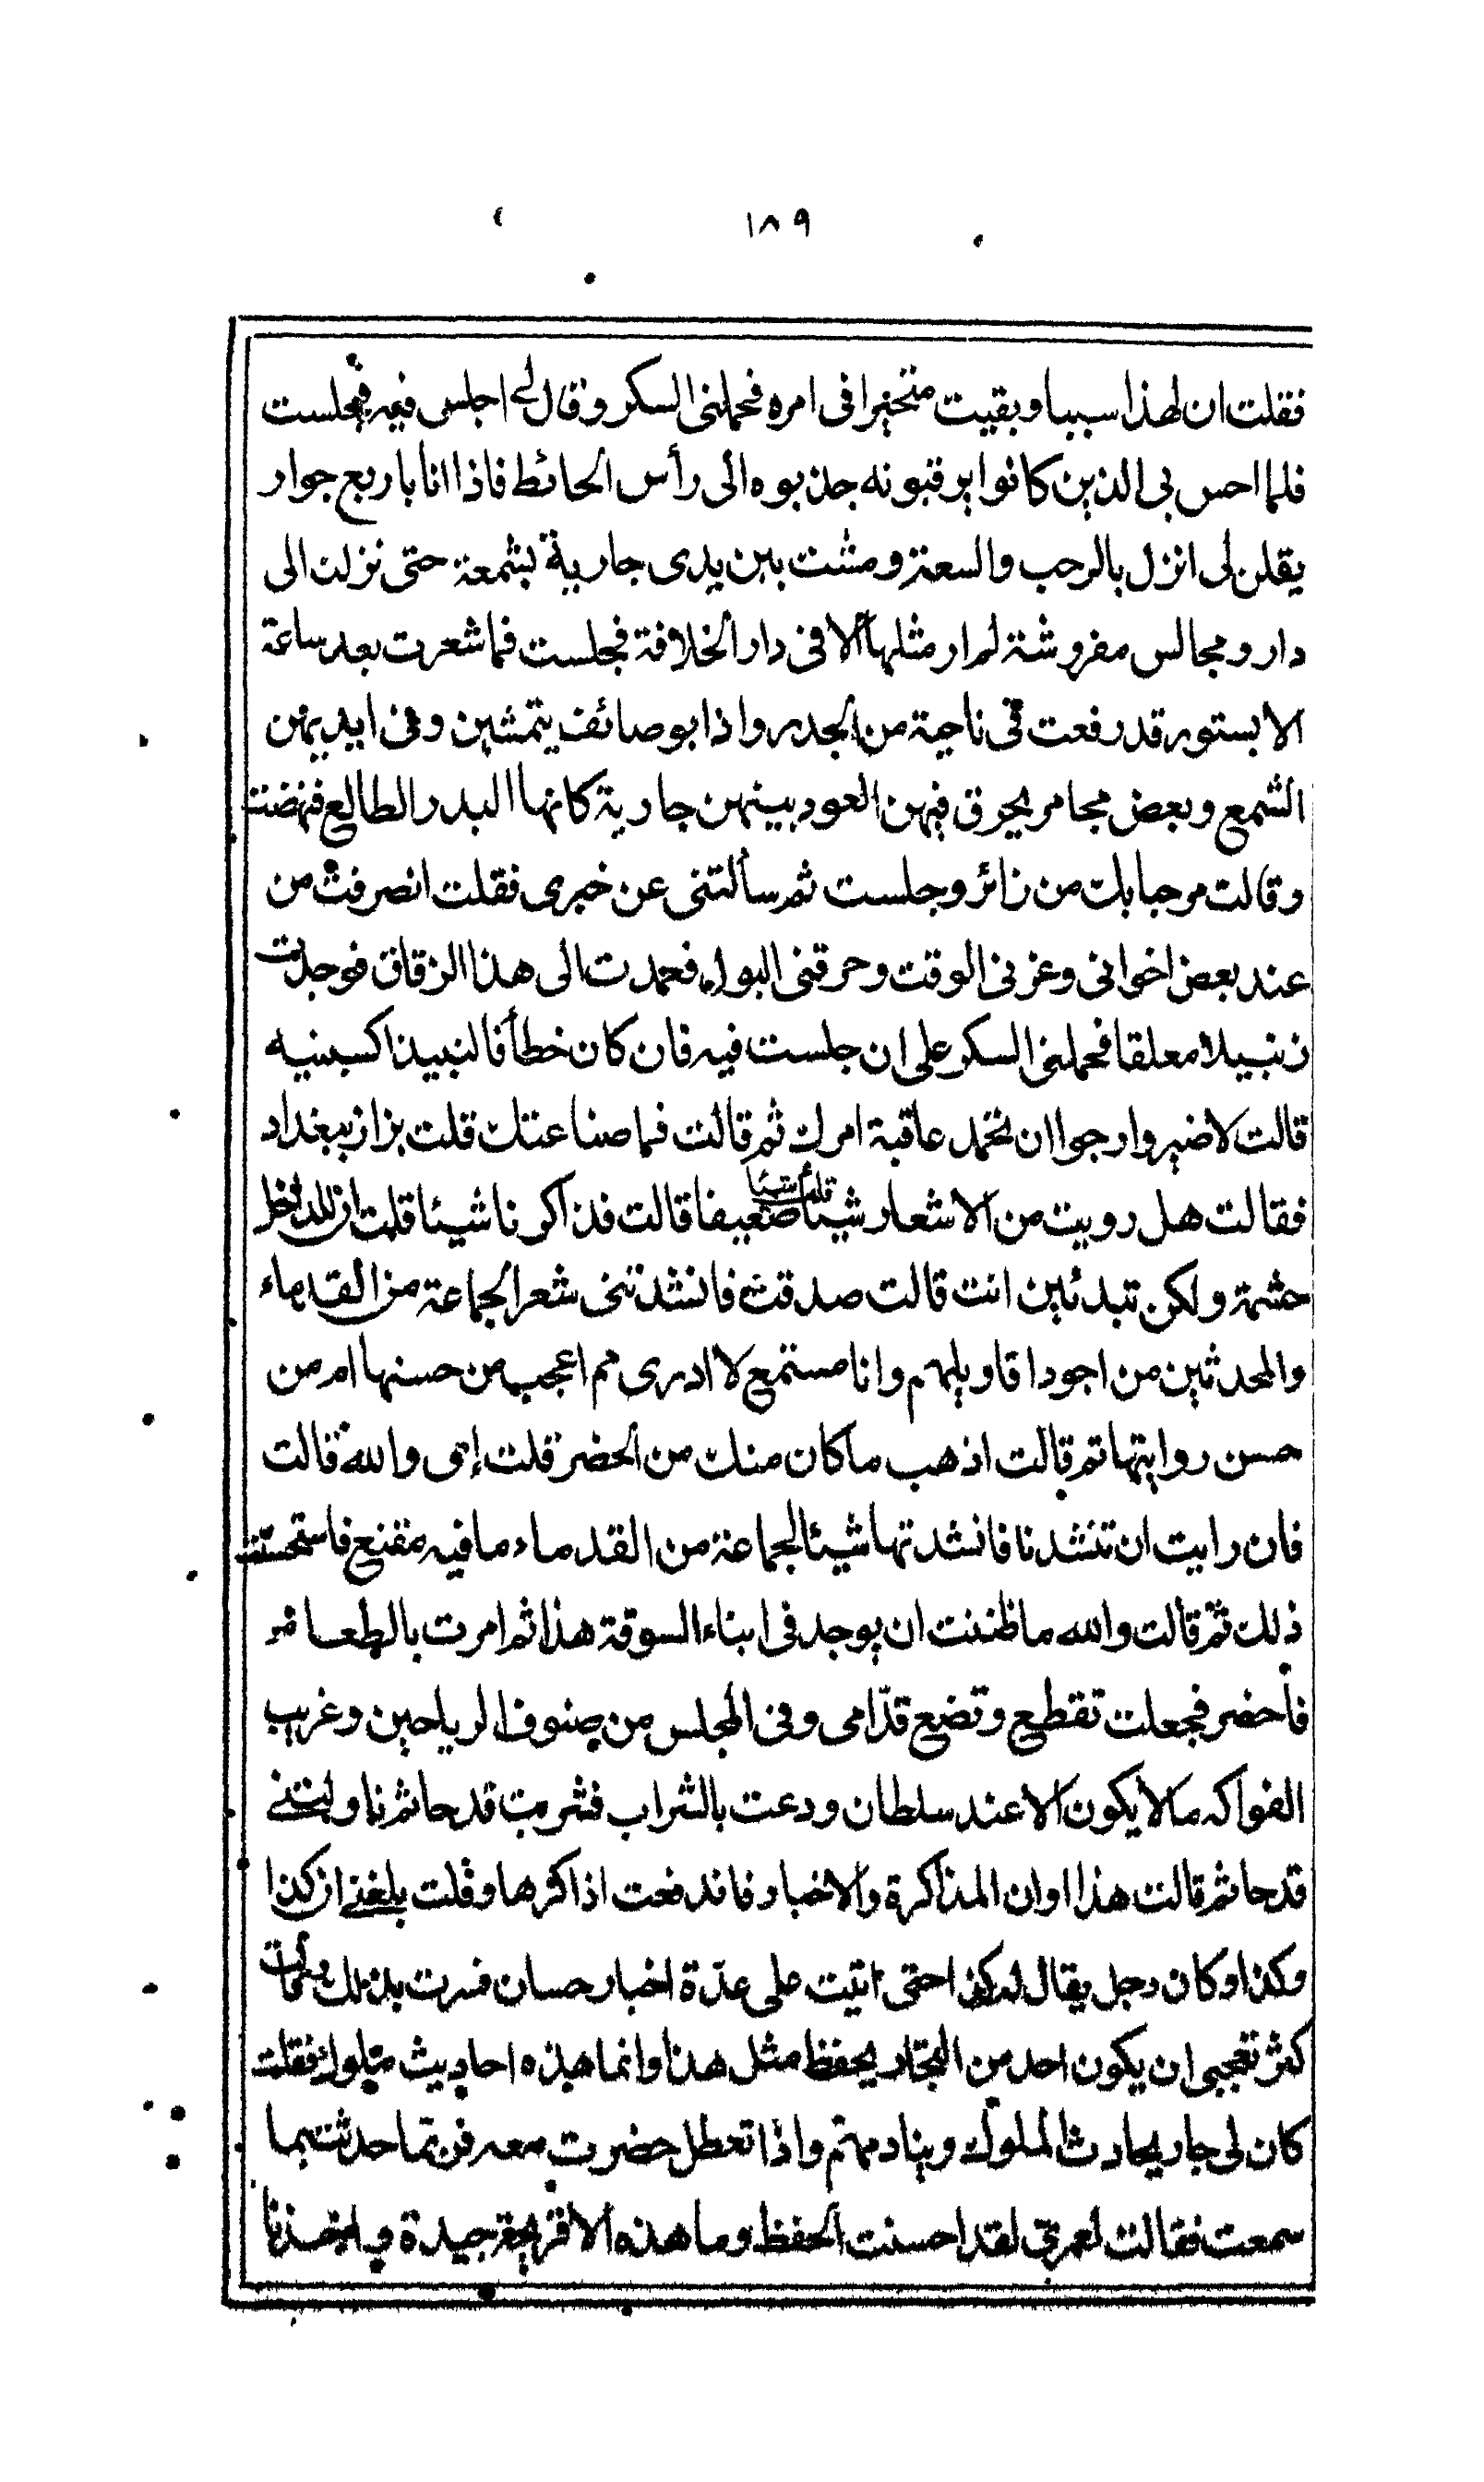 ١٨٩
فقلت ان لهذا سببا وبقيت متحيرا فى امره فحملنى السكر وقال لى اجلس فيه فجلست
فلما احس بى الذين كانوا يرقبونه جذبوه الى رأس الحائط فاذا انا باربع جوار
يقلن لى انزل بالرحب والسعة ومشت بين يدى جارية بشمعة حتى نزلت الى
دار ومجالس مفروشة لم ار مثلها الا فى دار الخلافة فجلست فما شعرت بعد ساعة
الا بستور قد رفعت فى ناحية من الجدر واذا بوصائف يتمشين وفى ايديهن
الشمع وبعض مجامر يحرق فيهن العود بينهن جارية كانها البدر الطالع فنهضت
وقالت مرحبا بك من زائر وجلست ثم سألتنى عن خبرى فقلت انصرفت من
عند بعض اخوانى وغرنى الوقت وحرقنى البول فعمدت الى هذا الزقاق فوجدت
زنبيلا معلقا فحملنى السكر على ان جلست فيه فان كان خطأ فالنبيذ اكسبنيه
قالت لا ضير وارجوا ان تحمد عاقبة امرك ثم قالت فما صناعتك قلت بزاز ببغداد
فقالت هل رويت من الاشعار شيئا قلت شيئا ضعيفا قالت فذاكرنا شيئا قلت ان للداخل
حشمة ولكن تبدئين انت قالت صدقت فانشدتنى شعر الجماعة من القدماء
والمحدثين من اجود اقاويلهم وانا مستمع لا ادرى مم اعجب من حسنها ام من
حسن روايتها ثم قالت اذهب ما كان منك من الحضر قلت إى والله قالت
فان رايت ان تنشدنا فانشدتها شيئا لجماعة من القدماء ما فيه مقنع فاستحسنت
ذلك ثم قالت والله ما ظننت ان يوجد فى ابناء السوقة هذا ثم امرت بالطعام
فأحضر فجعلت تقطع وتضع قدّامى وفى المجلس من صنوف الرياحين وغريب
الفواكه ما لا يكون الا عند سلطان ودعت بالشراب فشربت قدحا ثم ناولتنى
قدحا ثم قالت هذا اوان المذاكرة والاخبار فاندفعت اذاكرها وقلت بلغنى ان كذا
وكذا وكان رجل يقال له كذا حتى اتيت على عدّة اخبار حسان فسرت بذلك وقالت
كثر تعجبى ان يكون احد من التجار يحفظ مثل هذا وانما هذه احاديث ملوك فقلت
كان لى جار يحادث الملوك وينادمهم واذا تعطل حضرت معه فربما حدثت بما
سمعت فقالت لعمرى لقد احسنت الحفظ وما هذه الا قريحة جيدة واخذنا